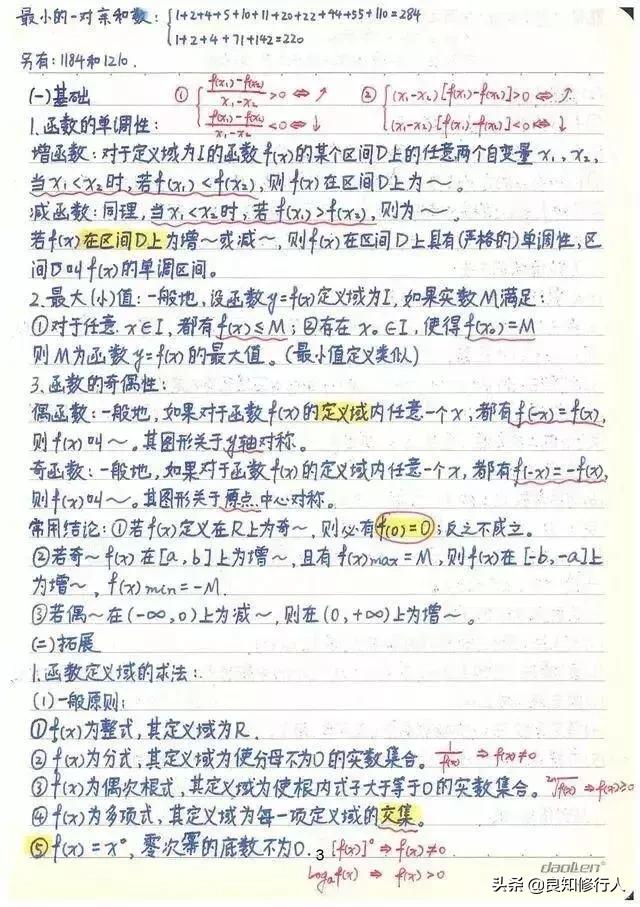 最小的一对亲和数: { 1+2+4+5+10+11+20+22+44+55+110=284
1+2+4+71+142=220
另有: 1184和1210.
(一)基础 ① { f(x₁)-f(x₂)/x₁-x₂ >0 ⇔ ↗ ② { (x₁-x₂)[f(x₁)-f(x₂)]>0 ⇔ ↗
f(x₁)-f(x₂)/x₁-x₂ <0 ⇔ ↓ (x₁-x₂)[f(x₁)-f(x₂)]<0 ⇔ ↓
1.函数的单调性:
增函数: 对于定义域为I的函数f(x)的某个区间D上的任意两个自变量x₁、x₂,
当x₁<x₂时,若f(x₁)<f(x₂),则f(x)在区间D上为~。
减函数: 同理,当x₁<x₂时,若f(x₁)>f(x₂),则为~。
若f(x)在区间D上为增~或减~,则f(x)在区间D上具有(严格的)单调性,区
间D叫f(x)的单调区间。
2.最大(小)值: 一般地,设函数y=f(x)定义域为I,如果实数M满足:
①对于任意x∈I,都有f(x)≤M; ②存在x₀∈I,使得f(x₀)=M
则M为函数y=f(x)的最大值。(最小值定义类似)
3.函数的奇偶性:
偶函数: 一般地,如果对于函数f(x)的定义域内任意一个x,都有f(-x)=f(x),
则f(x)叫~。其图形关于y轴对称。
奇函数: 一般地,如果对于函数f(x)的定义域内任意一个x,都有f(-x)=-f(x),
则f(x)叫~。其图形关于原点中心对称。
常用结论: ①若f(x)定义在R上为奇~,则必有f(0)=0; 反之不成立。
②若奇~f(x)在[a,b]上为增~,且有f(x)max=M,则f(x)在[-b,-a]上
为增~,f(x)min=-M.
③若偶~在(-∞,0)上为减~,则在(0,+∞)上为增~。
(二)拓展
1.函数定义域的求法:
(1)一般原则:
①f(x)为整式,其定义域为R.
②f(x)为分式,其定义域为使分母不为0的实数集合。 1/f(x) ⇒ f(x)≠0
③f(x)为偶次根式,其定义域为使根内式子大于等于0的实数集合。 ²ⁿ√f(x) ⇒ f(x)≥0
④f(x)为多项式,其定义域为每一项定义域的交集。
⑤f(x)=x⁰,零次幂的底数不为0. 3 [f(x)]⁰ ⇒ f(x)≠0
logₐf(x) ⇒ f(x)>0
daolen
头条 @良知修行人